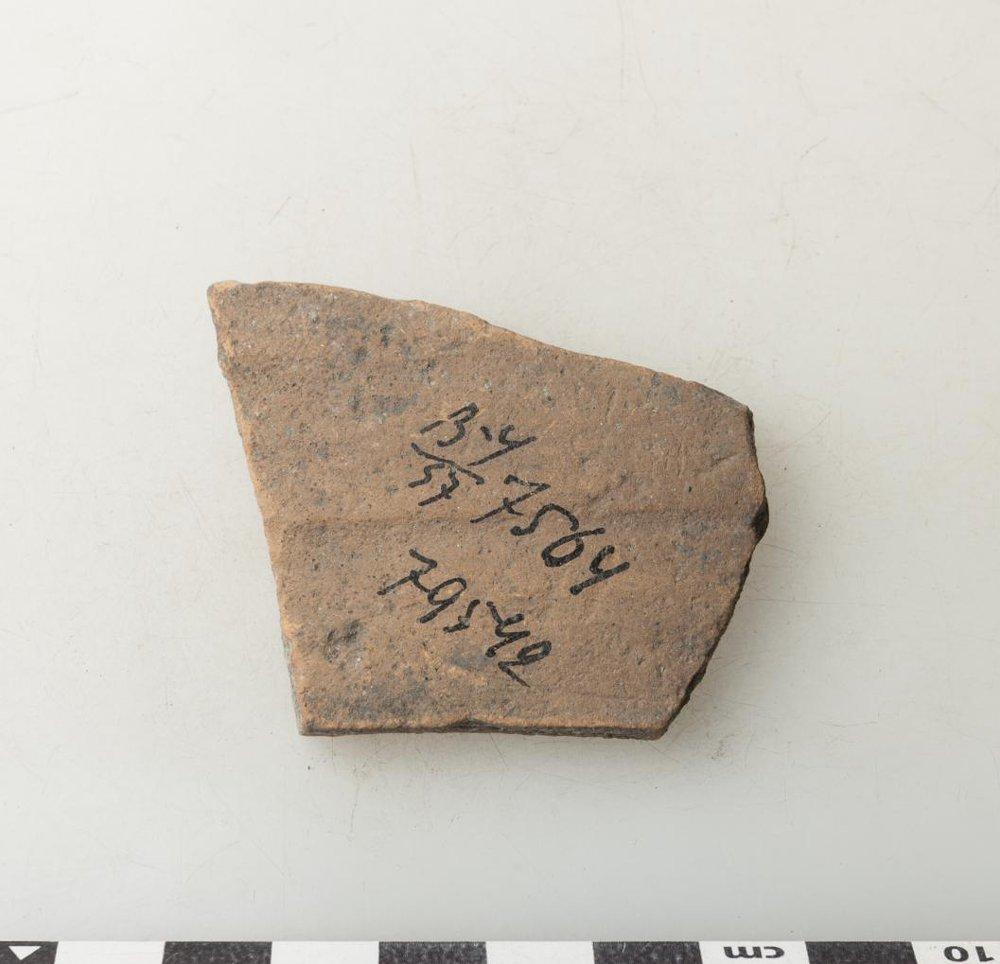 В-У
57 7564
79542
cm
10